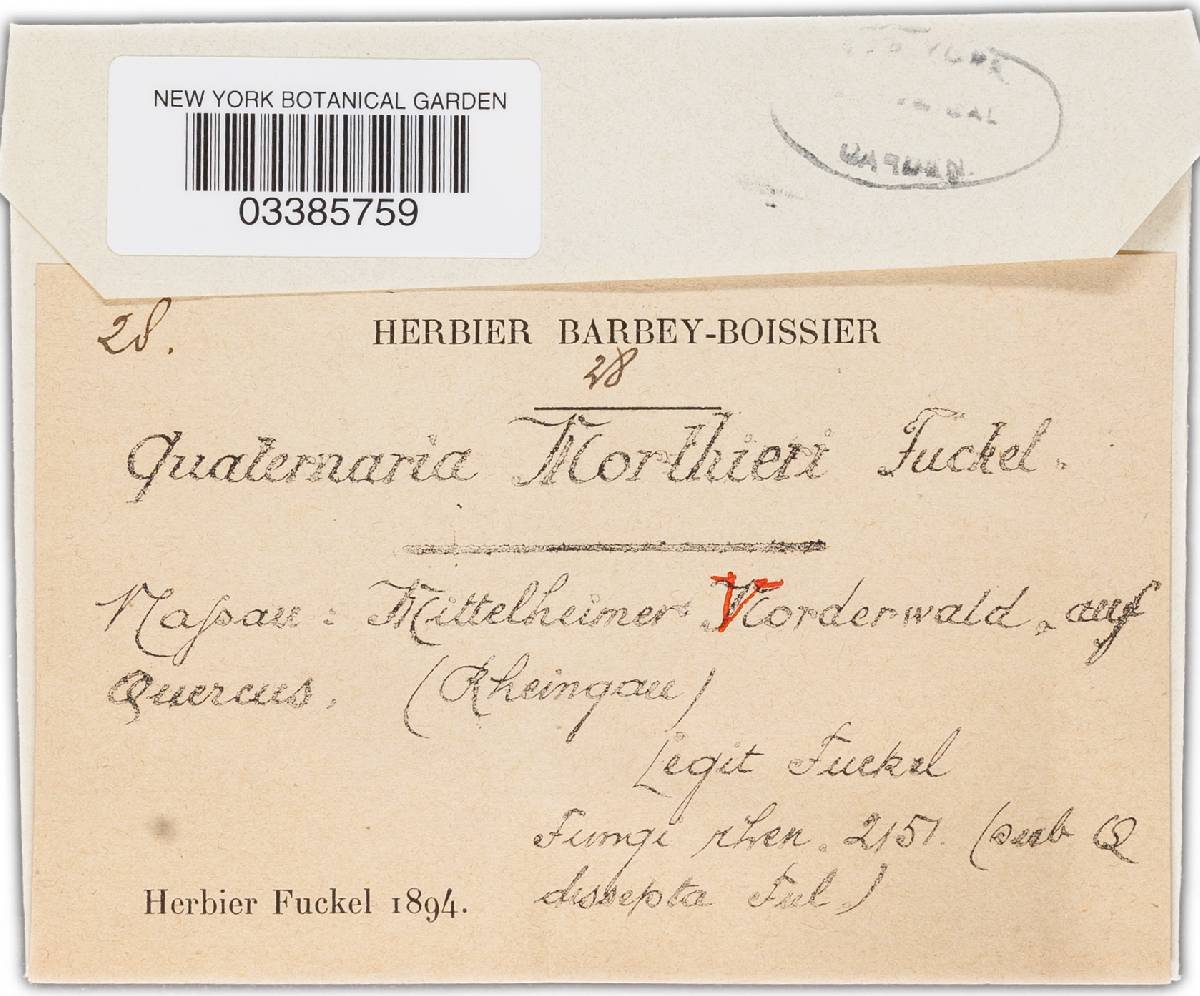 NEW YORK BOTANICAL GARDEN
03385759
GARDEN
28.
HERBIER BARBEY-BOISSIER
28
Quaternaria Morthieri Fuckel.
Nassau: Mittelheimer Vorderwald, auf
Quercus, (Rheingau)
Legit Fuckel
Fungi rhen. 2151. (sub Q
dissepta Tul.)
Herbier Fuckel 1894.